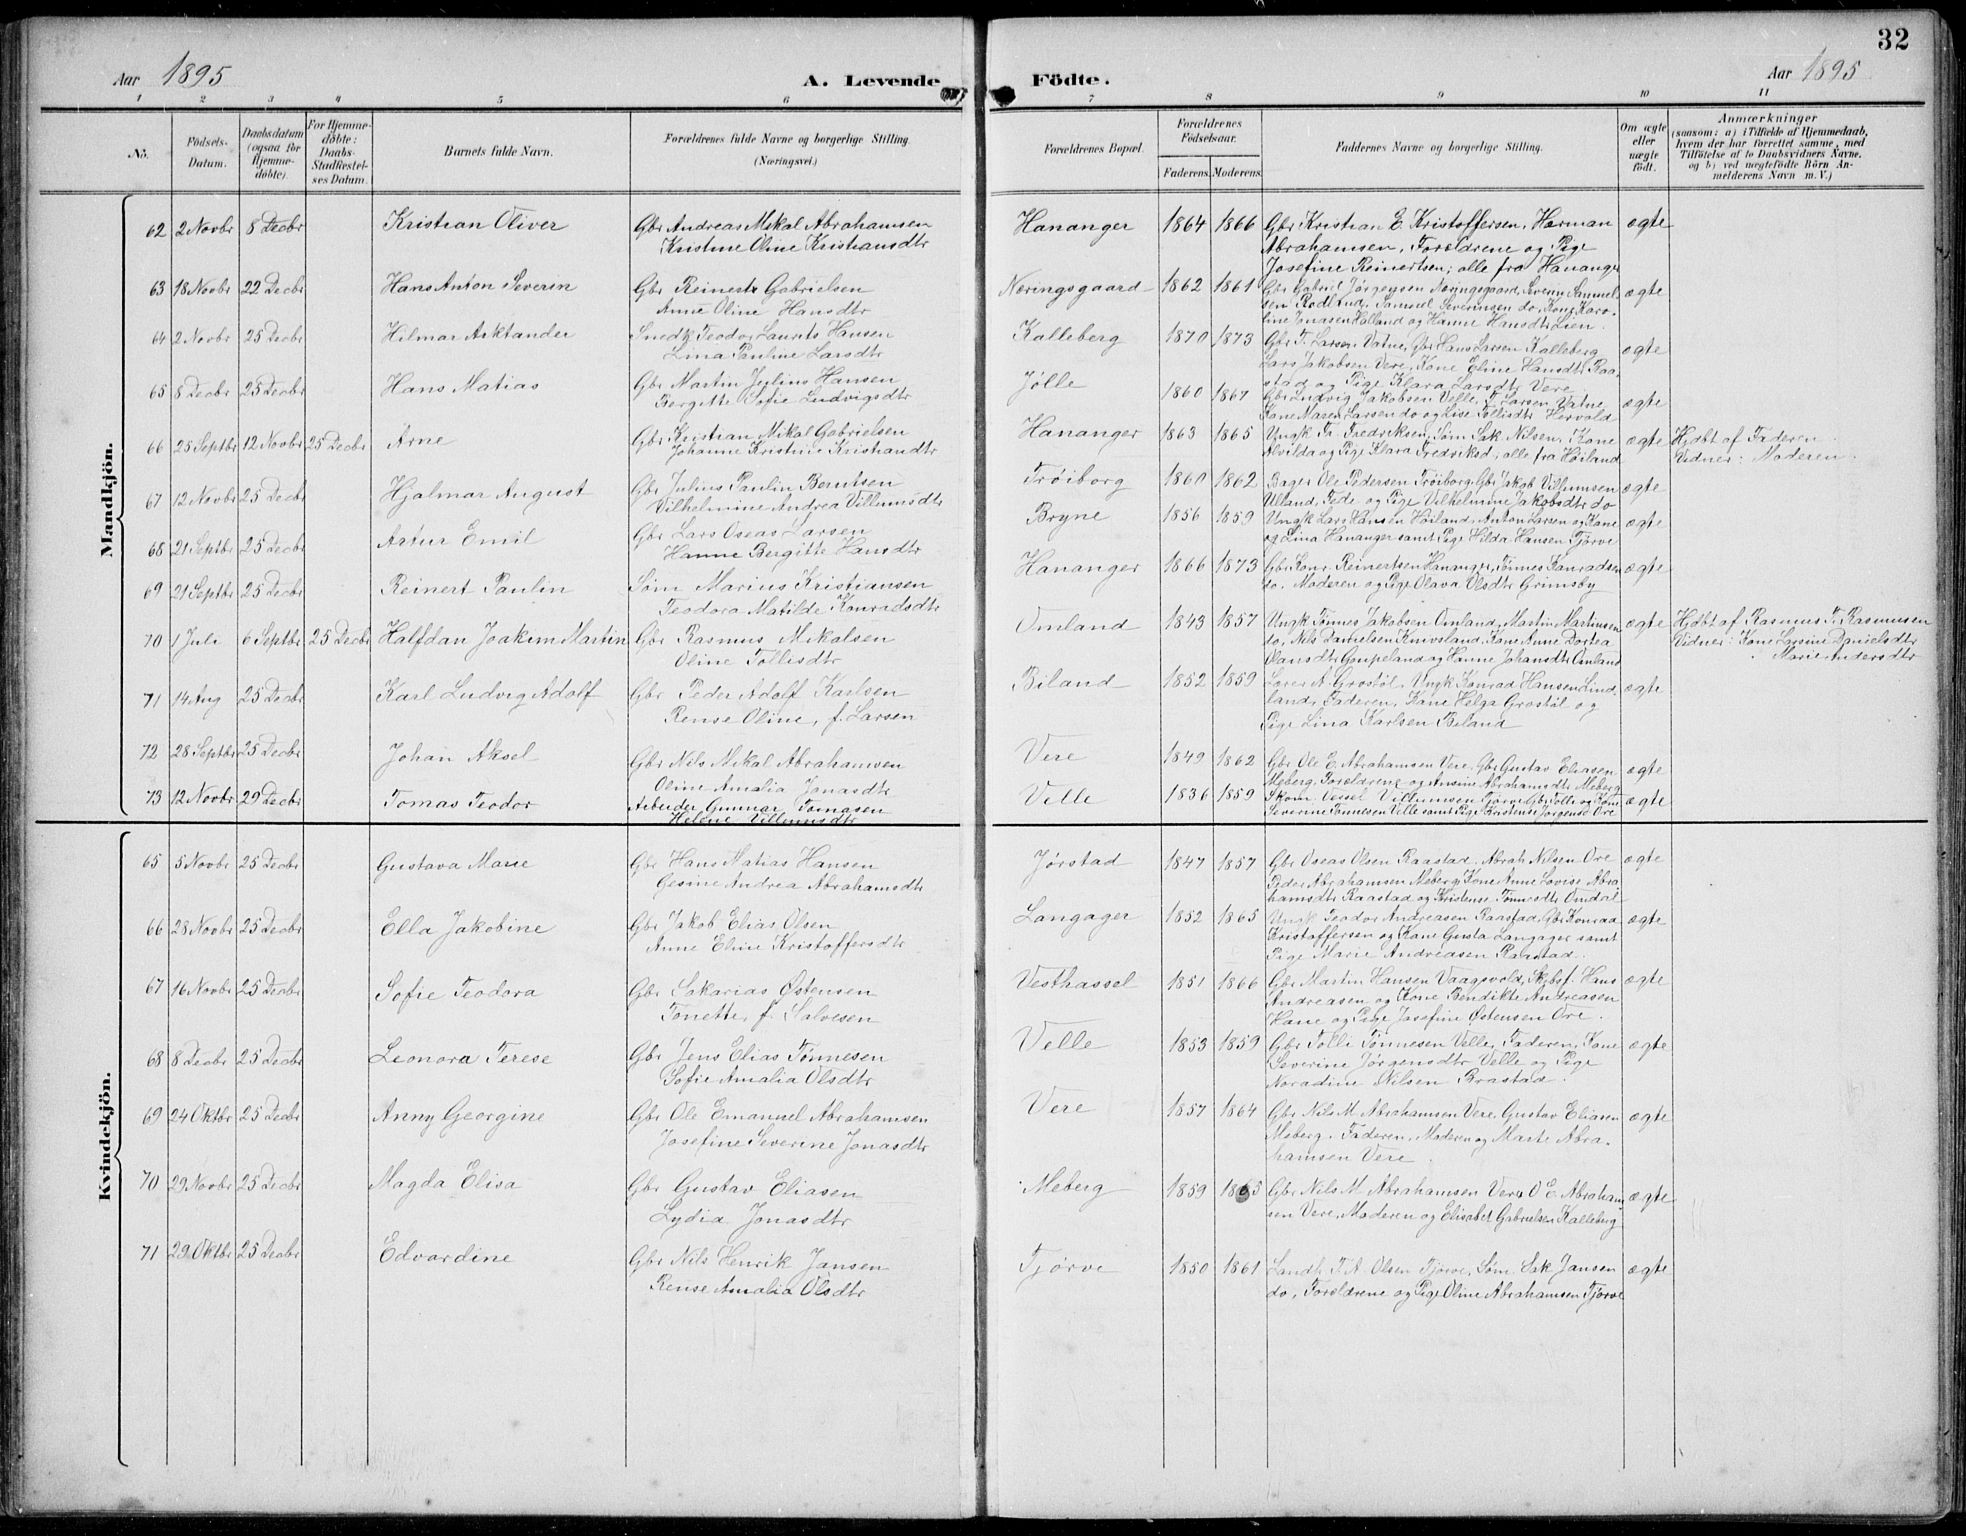 32
Aar 1895
A. Levende Födte.
Aar 1895
1 2 3 4 5 6 7 8 9 10 11
No.
Födsels-Datum.
Daabsdatum (ogsaa for Hjemmedöbte).
For Hjemmedöbte: Daabs-Stadfæstelses Datum.
Barnets fulde Navn.
Forældrenes fulde Navne og borgerlige Stilling. (Næringsvei.)
Forældrenes Bopæl.
Forældrenes Födselsaar.
Faderens. Moderens.
Faddernes Navne og borgerlige Stilling.
Om ægte eller uægte födt.
Anmærkninger
(saasom: a) i Tilfælde af Hjemmedaab, hvem der har forrettet samme, med Tilföielse af to Daabsvidners Navne, og b) ved uægtefödte Börn Anmelderens Navn m. V.)
Mandkjön.
62 2 Novbr 8 Decbr Kristian Oliver Gbr Andreas Mikal Abrahamsen Hananger 1864 1866 Gbr Kristian E. Kristoffersen, Herman ægte
Kristine Oline Kristiansdtr Abrahamsen, Forældrene og Pige
Josefine Reinertsen; alle fra Hananger
63 18 Novbr 22 Decbr Hans Anton Severin Gbr Reinert Gabrielsen Næringsgaard 1862 1861 Gbr Gabriel Jörgensen Næringsgaard, Severin Samuel- ægte
Anne Oline Hansdtr sen Rödland, Samuel Severinsen do, Kone Karo-
line Jonasen Halland og Hanne Hansdtr Lien.
64 2 Novbr 25 Decbr Hilmar Arktander Smed Teodor Laurits Hansen Kalleberg 1870 1873 Gbr T. Larsen Vatne, Gbr Hans Larsen Kalleberg ægte
Lina Pauline Larsdtr Lars Jakobsen Vere, Kone Eline Hansdtr Raa-
stad og Pige Klara Larsdtr Vere
65 8 Decbr 25 Decbr Hans Matias Gbr Martin Julius Hansen Jølle 1860 1867 Gbr Ludvig Jakobsen Velle, T. Larsen Vatne ægte
Bergitte Sofie Ludvigsdtr Kone Maren Larsen do og Lise Tollisdtr Hervold
66 25 Septbr 12 Novbr 25 Decbr Arne Gbr Kristian Mikal Gabrielsen Hananger 1863 1865 Ungk Fr. Fredriksen, Søm Sak Nilsen, Kone ægte Hjdbt af Faderen.
Johanne Kristine Kristiandtr Alvilda og Pige Klara Fredriksd, alle fra Høiland Vidner: Moderen.
67 12 Novbr 25 Decbr Hjalmar August Gbr Julius Paulin Berntsen Trøiborg 1860 1862 Bager Ole Pedersen Trøiborg, Gbr Jakob Villumsen ægte
Vilhelmine Andrea Villumsdtr Ulland, Fade og Pige Vilhelmine Jakobsdtr do
68 21 Septbr 25 Decbr Artur Emil Gbr Lars Oseas Larsen Bryne 1856 1859 Ungk Lars Hansen Høiland, Anton Larsen og Kone ægte
Hanne Bergitte Hansdtr og Lina Hananger samt Pige Hilda Hansen Tjörve
69 21 Septbr 25 Decbr Reinert Paulin Søm Marius Kristiansen Hananger 1866 1873 Gbr Konr Reinertsen Hananger, Tönnes Konradsen ægte
Teodora Matilde Konradsdtr do. Moderen og Pige Olava Olsdtr Grimsby
70 1 Juli 6 Septbr 25 Decbr Halfdan Joakim Martin Gbr Rasmus Mikalsen Omland 1843 1857 Ungk Tønnes Jakobsen Omland, Martin Martinsen ægte Hjdbt af Rasmus T. Rasmussen
Oline Tollisdtr do, Nils Danielsen Knivsland, Kone Anne Dortea Vidner: Kone Larsine Danielsdtr
Olausdtr Gaupeland og Hanne Johansdtr Omland Marie Andersdtr
71 14 Aug 25 Decbr Karl Ludvig Adolf Gbr Peder Adolf Karlsen Biland 1852 1859 Lærer A Grostöl, Ungk Konrad Hansen Lind- ægte
Rense Oline, f. Larsen land, Faderen, Kone Helga Grostöl og
Pige Lina Karlsen Biland
72 28 Septbr 25 Decbr Johan Aksel Gbr Nils Mikal Abrahamsen Vere 1849 1862 Gbr Ole E. Abrahamsen Vere, Gbr Gustav Eliasen ægte
Oline Amalia Jonasdtr Meberg, Forældrene og Ansine Abrahamsdtr Meberg
73 12 Novbr 29 Decbr Tomas Teodor Arbeider Gunnar Tomasen Velle 1836 1859 Skom. Villumsen Tjörve, Gbr Tolle og Kone ægte
Helene Villumsdtr Severine Tönnesen Velle samt Pige Kristense Jörgensd Ore
Kvindekjön.
65 5 Novbr 25 Decbr Gustava Marie Gbr Hans Matias Hansen Jørstad 1847 1857 Gbr Oseas Olsen Raastad, Abrah Nilsen Ore ægte
Gesine Andrea Abrahamsdtr Peder Abrahamsen Meberg, Kone Anne Lovise Abra-
hamsdtr Raastad og Kristense Tønnesdtr Omdal
66 28 Novbr 25 Decbr Ella Jakobine Gbr Jakob Elias Olsen Langager 1852 1865 Ungk Teodor Andreasen Raastad, Gbr Konrad ægte
Anne Eline Kristoffersdtr Kristoffersen og Kone Gusta Langager samt
Pige Marie Andreasen Raastad.
67 16 Novbr 25 Decbr Sofie Teodora Gbr Sakarias Østensen Vesthassel 1851 1866 Gbr Martin Hansen Vaagsvold, Skbsf. Hans ægte
Tonette, f. Salvesen Andreasen og Kone Bendikte Andreasen
Hane og Pige Josefine Østensen Ore.
68 8 Decbr 25 Decbr Leonora Terese Gbr Jens Elias Tønnesen Velle 1853 1859 Gbr Tolli Tønnesen Velle, Faderen, Kone ægte
Sofie Amalia Olsdtr Severine Jørgensdtr Velle og Pige
Noradine Nilsen Raastad.
69 24 Oktbr 25 Decbr Anny Georgine Gbr Ole Emanuel Abrahamsen Vere 1857 1864 Gbr Nils M Abrahamsen Vere, Gustav Eliasen ægte
Josefine Severine Jonasdtr Meberg, Faderen, Moderen og Marte Abra-
hamsen Vere.
70 29 Novbr 25 Decbr Magda Elisa Gbr Gustav Eliasen Meberg 1859 1865 Gbr Nils M Abrahamsen Vere, O E. Abraham- ægte
Lydia Jonasdtr sen Vere, Moderen og Elisabet Gabrielsen Kalleberg
71 29 Oktbr 25 Decbr Edvardine Gbr Nils Henrik Jansen Tjørve 1850 1861 Landh. T. A. Olsen Tjørve, Søm. Sak Jansen ægte
Rense Amalia Olsdtr do, Forældrene og Pige Oline Abrahamsen Tjørve